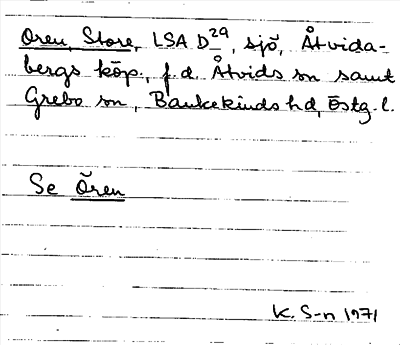 Oren, Store, LSA D29, sjö, Åtvida-
bergs köp., f.d. Åtvids sn samt
Grebo sn, Bankekinds hd, Östg. l.
Se Ören
K. S-n 1971